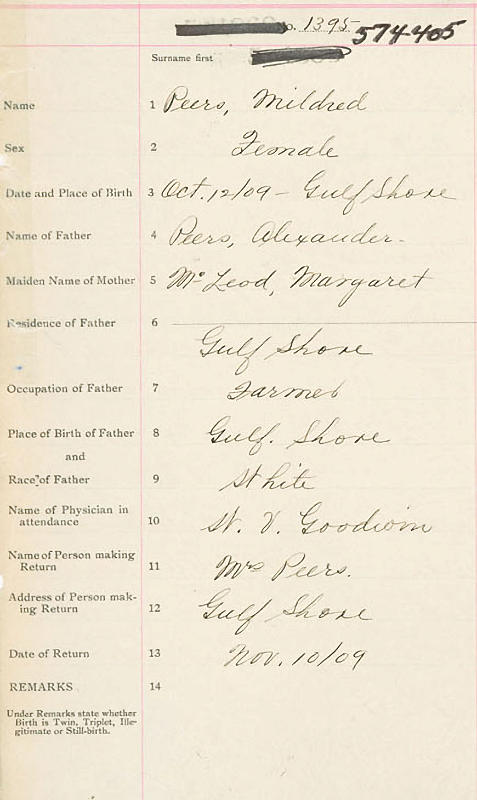 No. 1395 574405
Surname first
Name 1 Peers, Mildred
Sex 2 Female
Date and Place of Birth 3 Oct. 12/09 - Gulf Shore
Name of Father 4 Peers, Alexander.
Maiden Name of Mother 5 McLeod, Margaret
Residence of Father 6
Gulf Shore
Occupation of Father 7 Farmer
Place of Birth of Father 8 Gulf. Shore
and
Race of Father 9 White
Name of Physician in
attendance 10 W. V. Goodwin
Name of Person making
Return 11 Mrs Peers.
Address of Person mak-
ing Return 12 Gulf Shore
Date of Return 13 Nov. 10/09
REMARKS 14
Under Remarks state whether
Birth is Twin, Triplet, Ille-
gitimate or Still-birth.